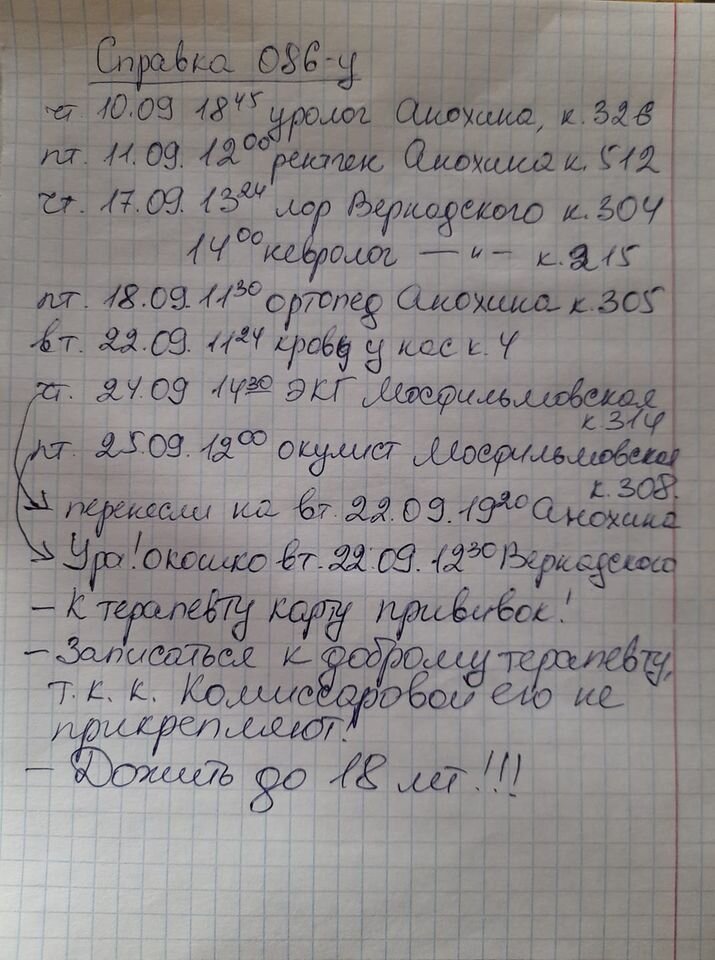 Справка 086-у
чт. 10.09 18⁴⁵ уролог Анохина, к. 326
пт. 11.09. 12⁰⁰ рентген Анохина к. 512
чт. 17.09. 13²⁴ лор Вернадского к. 304
14⁰⁰ невролог — " — к. 215
пт. 18.09. 11³⁰ ортопед Анохина к. 305
вт. 22.09. 11²⁴ кровь у нас к. 4
чт. 24.09 14³⁰ ЭКГ Мосфильмовская
к. 314
пт. 25.09. 12⁰⁰ окулист Мосфильмовская
к. 308.
перенесли на вт. 22.09. 19²⁰ Анохина
Ура! окошко вт. 22.09. 12³⁰ Вернадского
- К терапевту карту прививок!
- Записаться к доброму терапевту,
т. к. к. Комиссаровой его не
прикрепляют!
- Дожить до 18 лет!!!